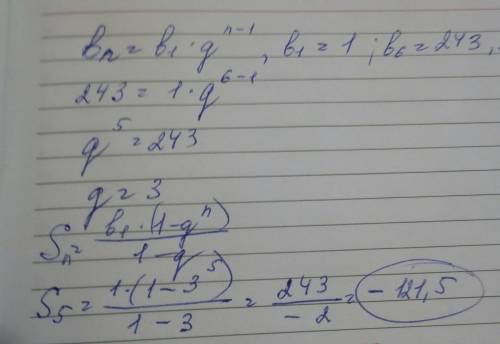 bₙ = b₁ · q^(n-1), b₁ = 1; b₆ = 243,
243 = 1 · q^(6-1)
q^5 = 243
q = 3
Sₙ = b₁ · (1 - q^n) / (1 - q)
S₅ = 1 · (1 - 3^5) / (1 - 3) = 243 / (-2) = -121,5